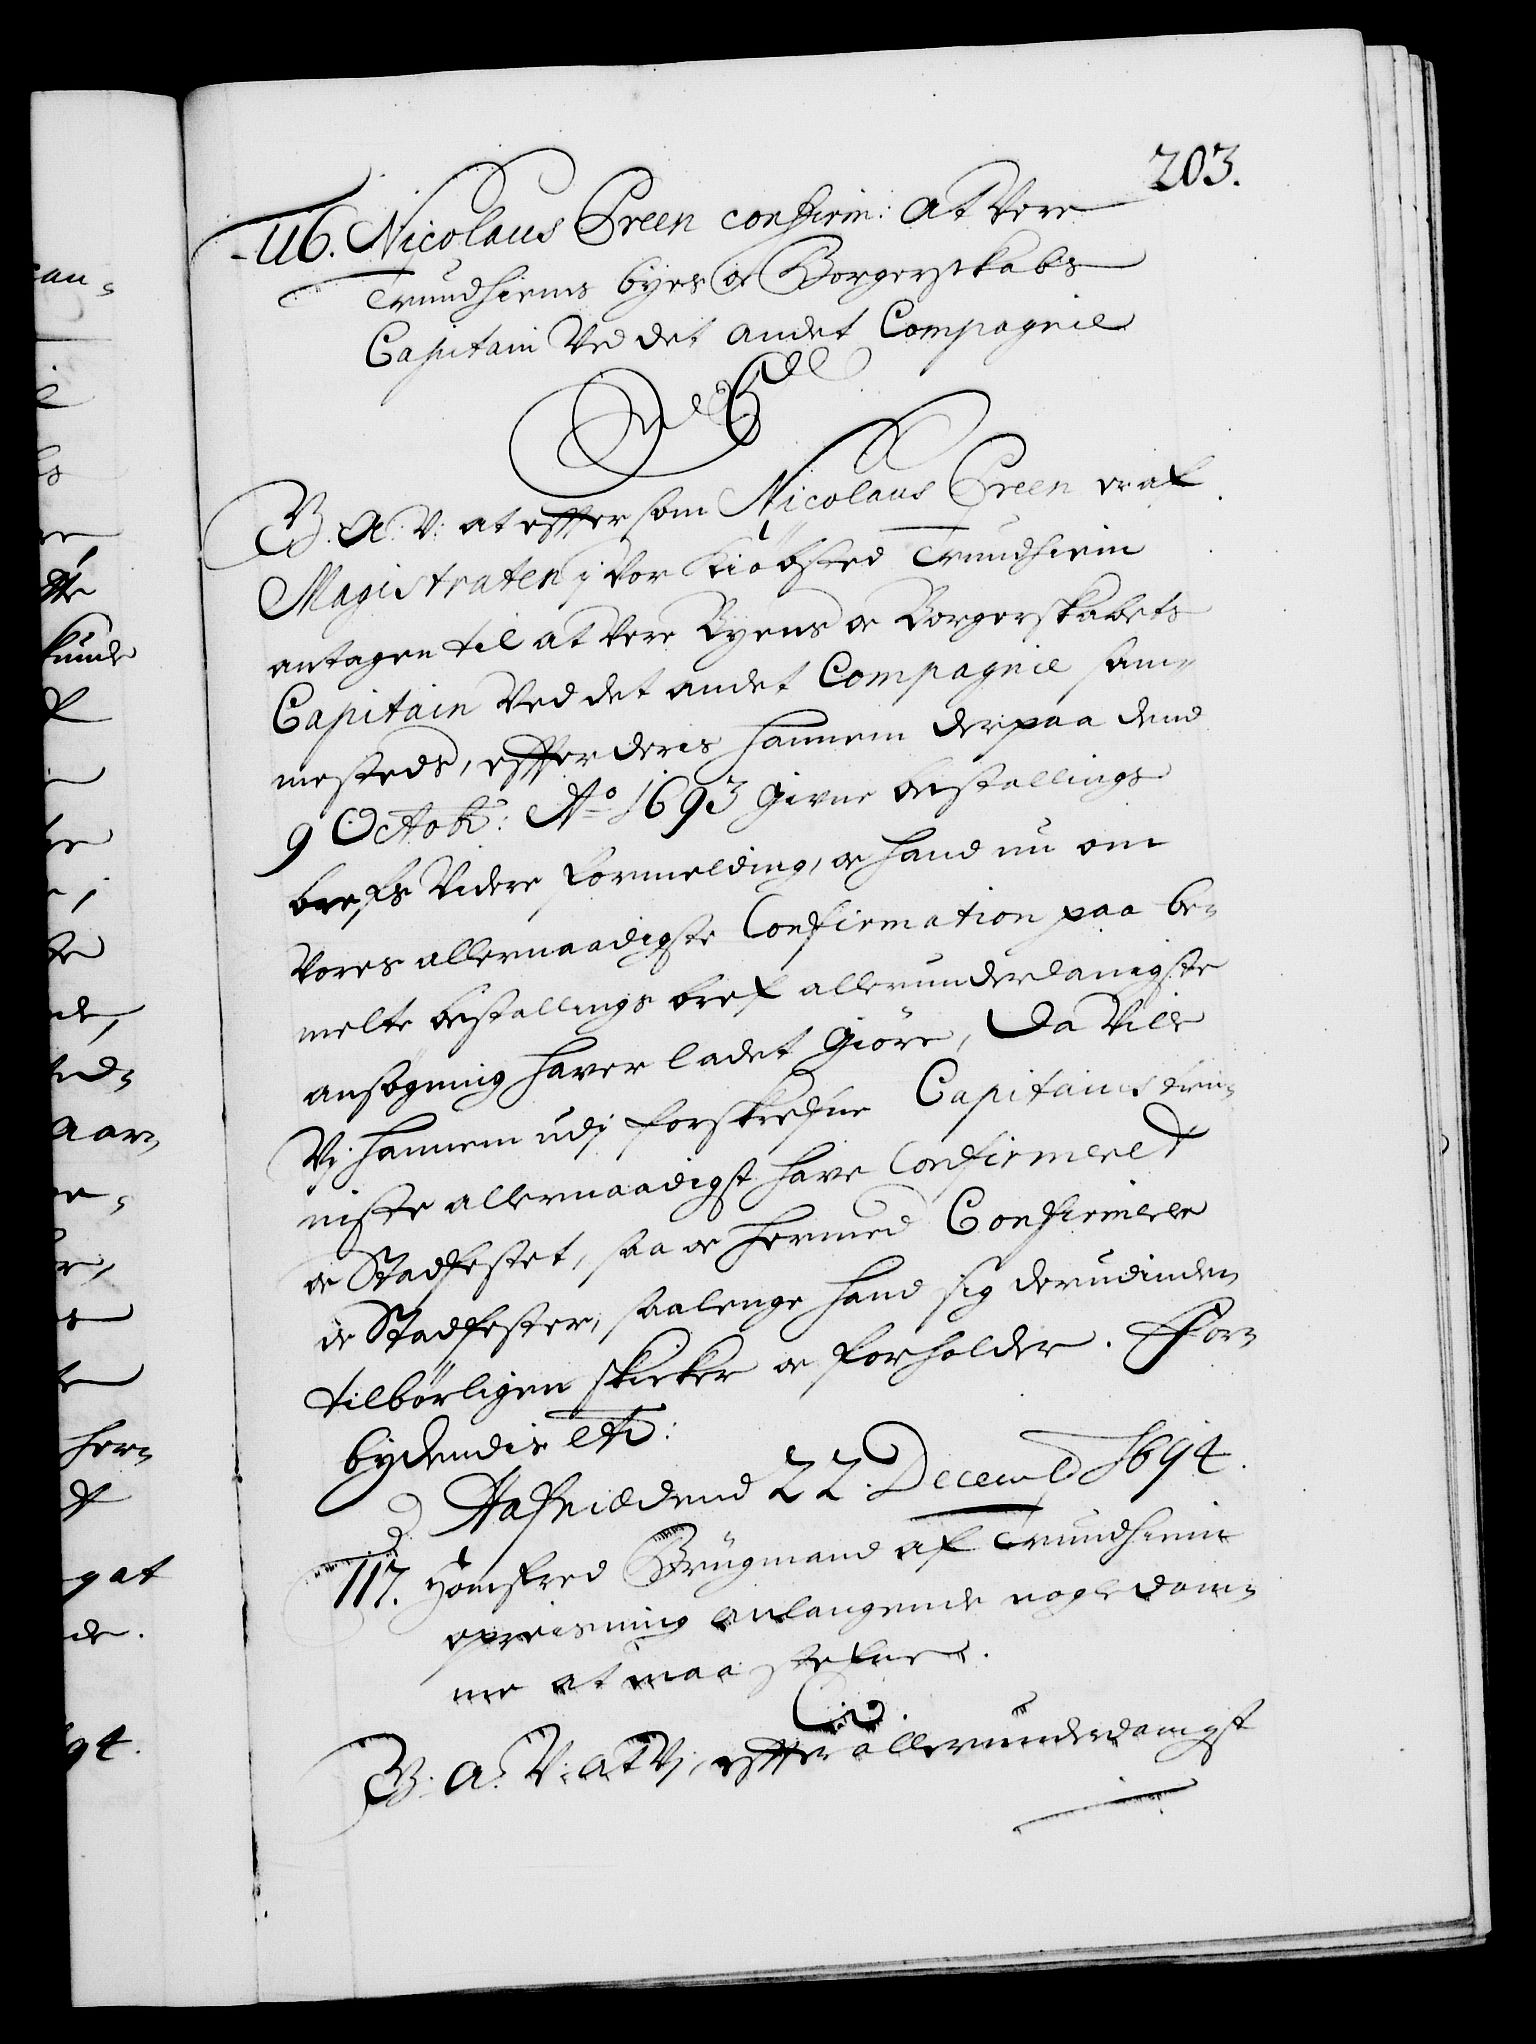 203.
116. Nicolaus Preen confirm: at Vere
Trundhiems byes oc Borgerskabs
Capitain Ved det andet Compagnie
C5
G. A. V: at efftersom Nicolaus Preen er af
Magistraten j Vor Kiöbsted Trundhiem
antagen til at Vere Byens oc Borgerskabets
Capitain Ved det andet Compagnie sam-
mesteds, effter deris hannem derpaa dend
9 Octobr: Ao 1693 givne bestallings
brefs Videre formelding, oc hand nu om
Vores allernaadigste Confirmation paa be-
melte bestallings bref allerunderdanigste
ansögning hafver ladet giöre, Da Ville
Vj hannem udj forskrefne Capitains tien-
niste allernaadigst have Confirmeret
oc Stadfestet, saa oc hermed Confirmere
oc Stadfester, saalenge hand sig derudinden
tilbörligen skicker oc forholder. For-
bydendis etc:
Hafniæ dend 22. Decembr 1694.
117. Homfred Brügmand af Trundhiem
opreisning anlangende nogle dom-
me at maa stefne.
G. A. V: at Vj, effter allerunderdanigst
can-
kunde
de,
her-
de.